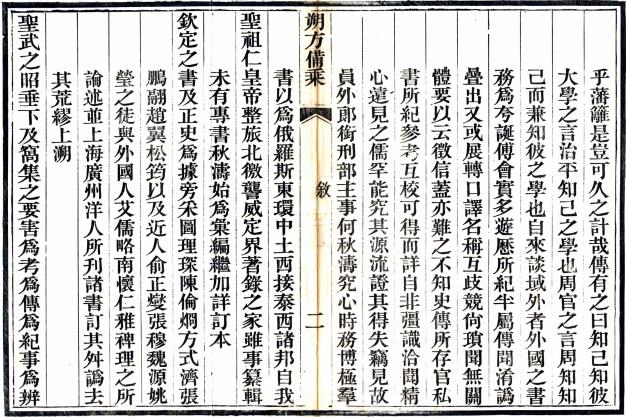 乎藩籬是豈可久之計哉傳有之曰知己知彼
大學之言治平知己之學也周官之言周知知
己而兼知彼之學也自來談域外者外國之書
務爲夸誕傅會實多遊歷所紀半屬傳聞淆譌
疊出又或展轉口譯名稱互歧競尙瑣聞無關
體要以云徵信蓋亦難之不知史傳所存官私
書所紀參考互校可得而詳自非彊識洽聞精
心遠見之儒罕能究其源流證其得失竊見故
員外郎銜刑部主事何秋濤究心時務博極羣
朔方備乘
敘
二
書以爲俄羅斯東環中土西接泰西諸邦自我
聖祖仁皇帝整旅北徼讋威定界著錄之家雖事纂輯
未有專書秋濤始爲彙編繼加詳訂本
欽定之書及正史爲據旁采圖理琛陳倫烱方式濟張
鵬翮趙翼松筠以及近人俞正燮張穆魏源姚
瑩之徒與外國人艾儒略南懷仁雅裨理之所
論述並上海廣州洋人所刊諸書訂其舛譌去
其荒繆上溯
聖武之昭垂下及窩集之要害爲考爲傳爲紀事爲辨